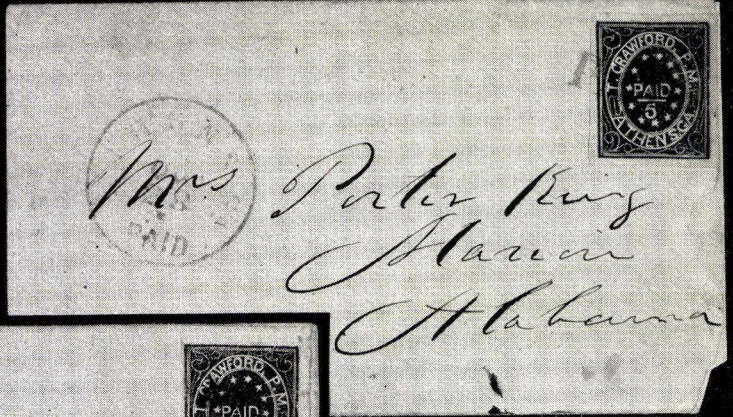 T. CRAWFORD, P.M.
PAID
5
ATHENS GA
PAID
Mrs Porter King
Marion
Alabama
T. CRAWFORD, P.M.
PAID